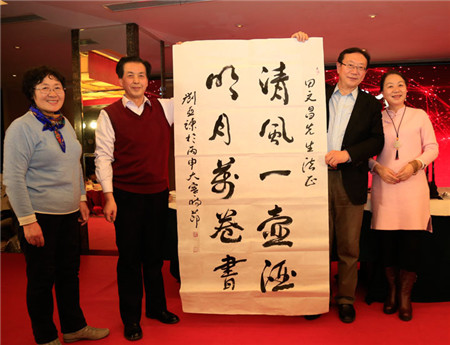 田元昌先生法正
清風一壺酒
明月萬卷書
劉亞諫於丙申大雪時節